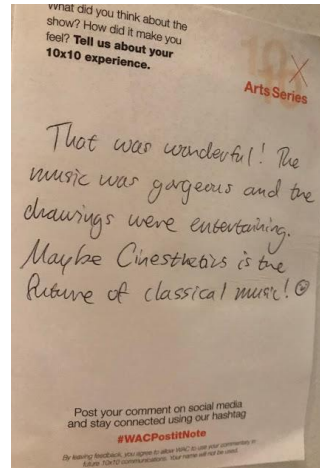 What did you think about the
show? How did it make you
feel? Tell us about your
10x10 experience.
10
X
10
Arts Series
That was wonderful! The
music was gorgeous and the
drawings were entertaining.
Maybe Cinesthetics is the
future of classical music! ☺
Post your comment on social media
and stay connected using our hashtag
#WACPostitNote
By leaving feedback, you agree to allow WAC to use your commentary in
future 10x10 communications. Your name will not be used.